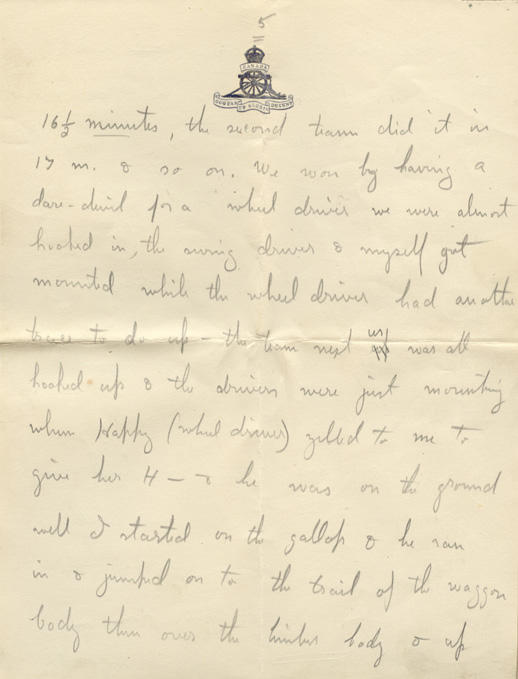 5
CANADA
16½ minutes, the second team did it in
17 m. & so on. We won by having a
dare-devil for a wheel driver we were almost
hooked in, the swing driver & myself got
mounted while the wheel driver had another
trace to do up – the team next us was all
hooked up & the drivers were just mounting
when Happy (wheel driver) yelled to me to
give her H— & he was on the ground
well I started on the gallop & he ran
in & jumped on to the trail of the waggon
body then over the limber body & up